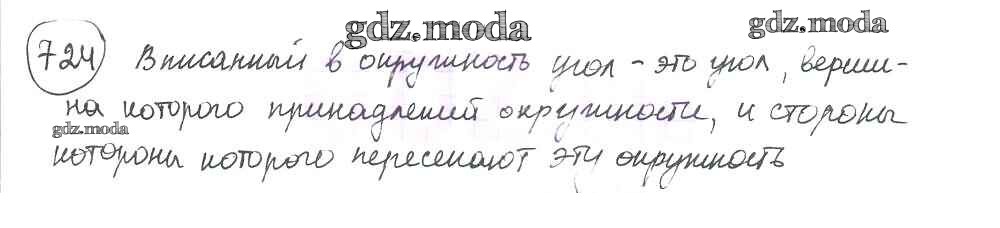 gdz.moda
gdz.moda
724 Вписанный в окружность угол - это угол, верши-
на которого принадлежит окружности, и стороны
gdz.moda
которого которого пересекают эту окружность